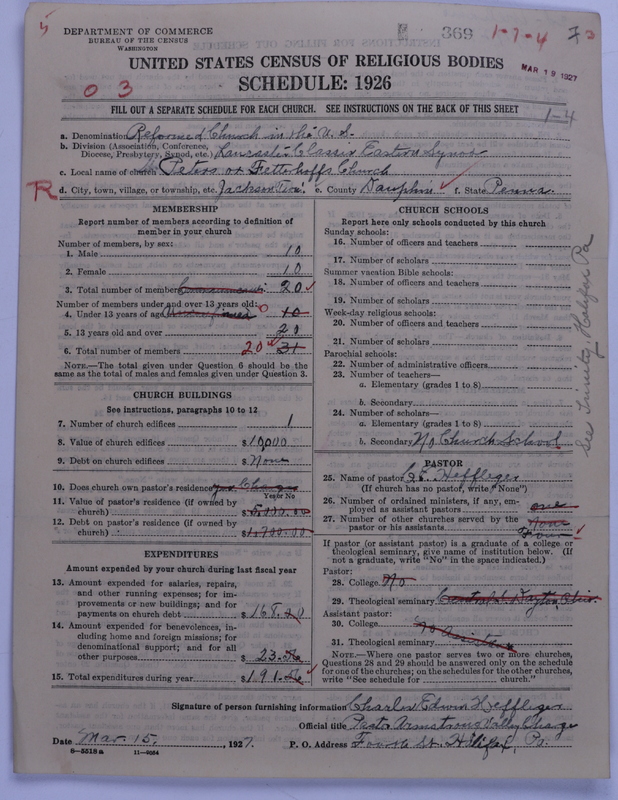 5
DEPARTMENT OF COMMERCE
BUREAU OF THE CENSUS
WASHINGTON
369 1-7-4
UNITED STATES CENSUS OF RELIGIOUS BODIES
MAR 19 1927
SCHEDULE: 1926
0 3
FILL OUT A SEPARATE SCHEDULE FOR EACH CHURCH. SEE INSTRUCTIONS ON THE BACK OF THIS SHEET
1-4
a. Denomination Reformed Church in the U.S.
b. Division (Association, Conference, Diocese, Presbytery, Synod, etc.) Lancaster Classis Eastern Synod
c. Local name of church St Peters or Fetterhoffs Church
R d. City, town, village, or township, etc. Jackson Twp. e. County Dauphin f. State Penna.
MEMBERSHIP
Report number of members according to definition of member in your church
Number of members, by sex:
1. Male 10
2. Female 10
3. Total number of members 20
Number of members under and over 13 years old:
4. Under 13 years of age 0 10
5. 13 years old and over 21
6. Total number of members 20 31
NOTE.—The total given under Question 6 should be the same as the total of males and females given under Question 3.
CHURCH BUILDINGS
See instructions, paragraphs 10 to 12
7. Number of church edifices 1
8. Value of church edifices $10,000
9. Debt on church edifices $None
10. Does church own pastor's residence yes Charge
Yes or No
11. Value of pastor's residence (if owned by church) $
12. Debt on pastor's residence (if owned by church) $1,700.00
EXPENDITURES
Amount expended by your church during last fiscal year
13. Amount expended for salaries, repairs, and other running expenses; for improvements or new buildings; and for payments on church debt $168.
14. Amount expended for benevolences, including home and foreign missions; for denominational support; and for all other purposes $23.
15. Total expenditures during year $191.
CHURCH SCHOOLS
Report here only schools conducted by this church
Sunday schools:
16. Number of officers and teachers
17. Number of scholars
Summer vacation Bible schools:
18. Number of officers and teachers
19. Number of scholars
Week-day religious schools:
20. Number of officers and teachers
21. Number of scholars
Parochial schools:
22. Number of administrative officers
23. Number of teachers—
a. Elementary (grades 1 to 8)
b. Secondary
24. Number of scholars—
a. Elementary (grades 1 to 8)
b. Secondary No Church School
See Trinity, Halifax Pa
PASTOR
25. Name of pastor C.E. Heffleger
(If church has no pastor, write "None")
26. Number of ordained ministers, if any, employed as assistant pastors one
27. Number of other churches served by the pastor or his assistants None Four
If pastor (or assistant pastor) is a graduate of a college or theological seminary, give name of institution below. (If not a graduate, write "No" in the space indicated.)
Pastor:
28. College No
29. Theological seminary Central Dayton Ohio.
Assistant pastor:
30. College No Assistant
31. Theological seminary
NOTE.—Where one pastor serves two or more churches, Questions 28 and 29 should be answered only on the schedule for one of the churches; on the schedules for the other churches, write "See schedule for church."
Signature of person furnishing information Charles Edwin Heffleger
Official title Pastor Armstrong Valley Charge
Date Mar 15, 1927. P. O. Address Fourth St. Halifax, Pa.
8—5518 a 11—8664